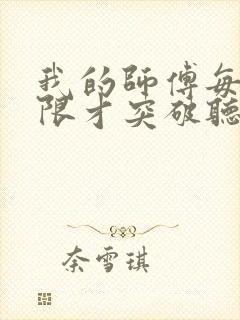 我的師傅每
限才突破聽
奈雪琪